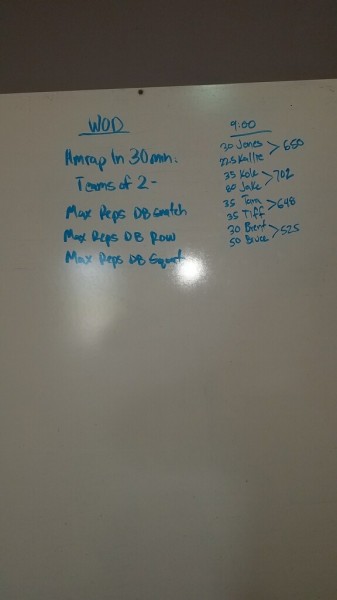 WOD
Amrap In 30 min:
Teams of 2-
Max Reps DB Snatch
Max Reps DB Row
Max Reps DB Squat
9:00
30 Jones > 650
22.5 Kallie
35 Kole > 702
80 Jake
35 Tom > 648
35 Tiff
30 Brent > 525
50 Bruce